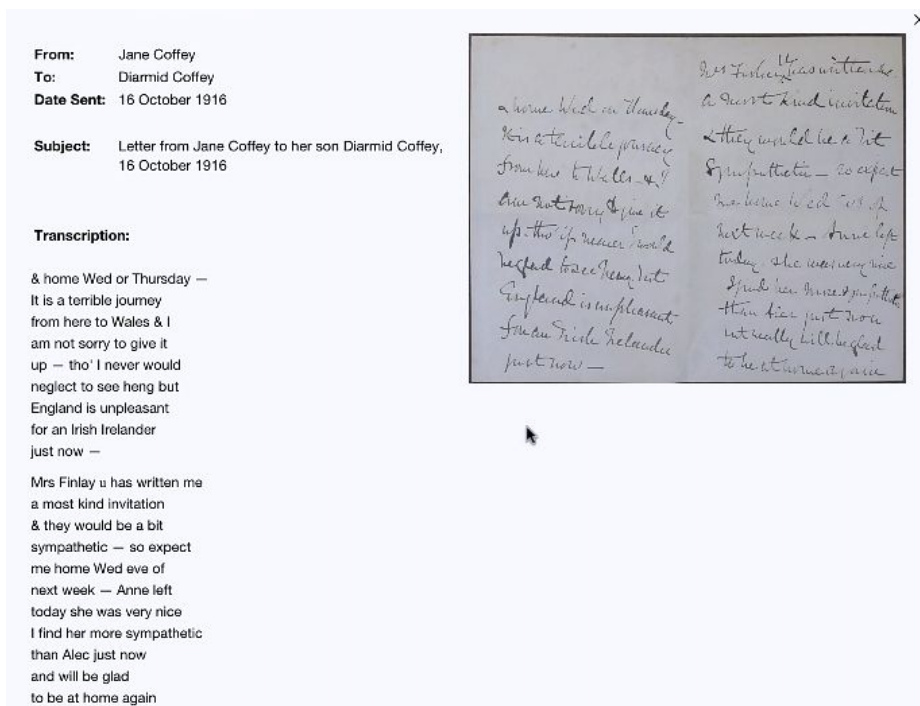 ×
From: Jane Coffey
To: Diarmid Coffey
Date Sent: 16 October 1916
Subject: Letter from Jane Coffey to her son Diarmid Coffey,
16 October 1916
Transcription:
& home Wed or Thursday —
It is a terrible journey
from here to Wales & I
am not sorry to give it
up — tho' I never would
neglect to see heng but
England is unpleasant
for an Irish Irelander
just now —
Mrs Finlay u has written me
a most kind invitation
& they would be a bit
sympathetic — so expect
me home Wed eve of
next week — Anne left
today she was very nice
I find her more sympathetic
than Alec just now
and will be glad
to be at home again
& home Wed or Thursday —
It is a terrible journey
from here to Wales — & I
am not sorry to give it
up — tho' if nearer I would
be glad to see but
England is unpleasant
for an Irish Irelander
just now —
Mrs has written me
a most kind invitation
& they would be a bit
sympathetic — so expect
me home Wed of
next week — Anne left
today. she was very nice
I find her more sympathetic
than just now
really will be glad
to be at home again